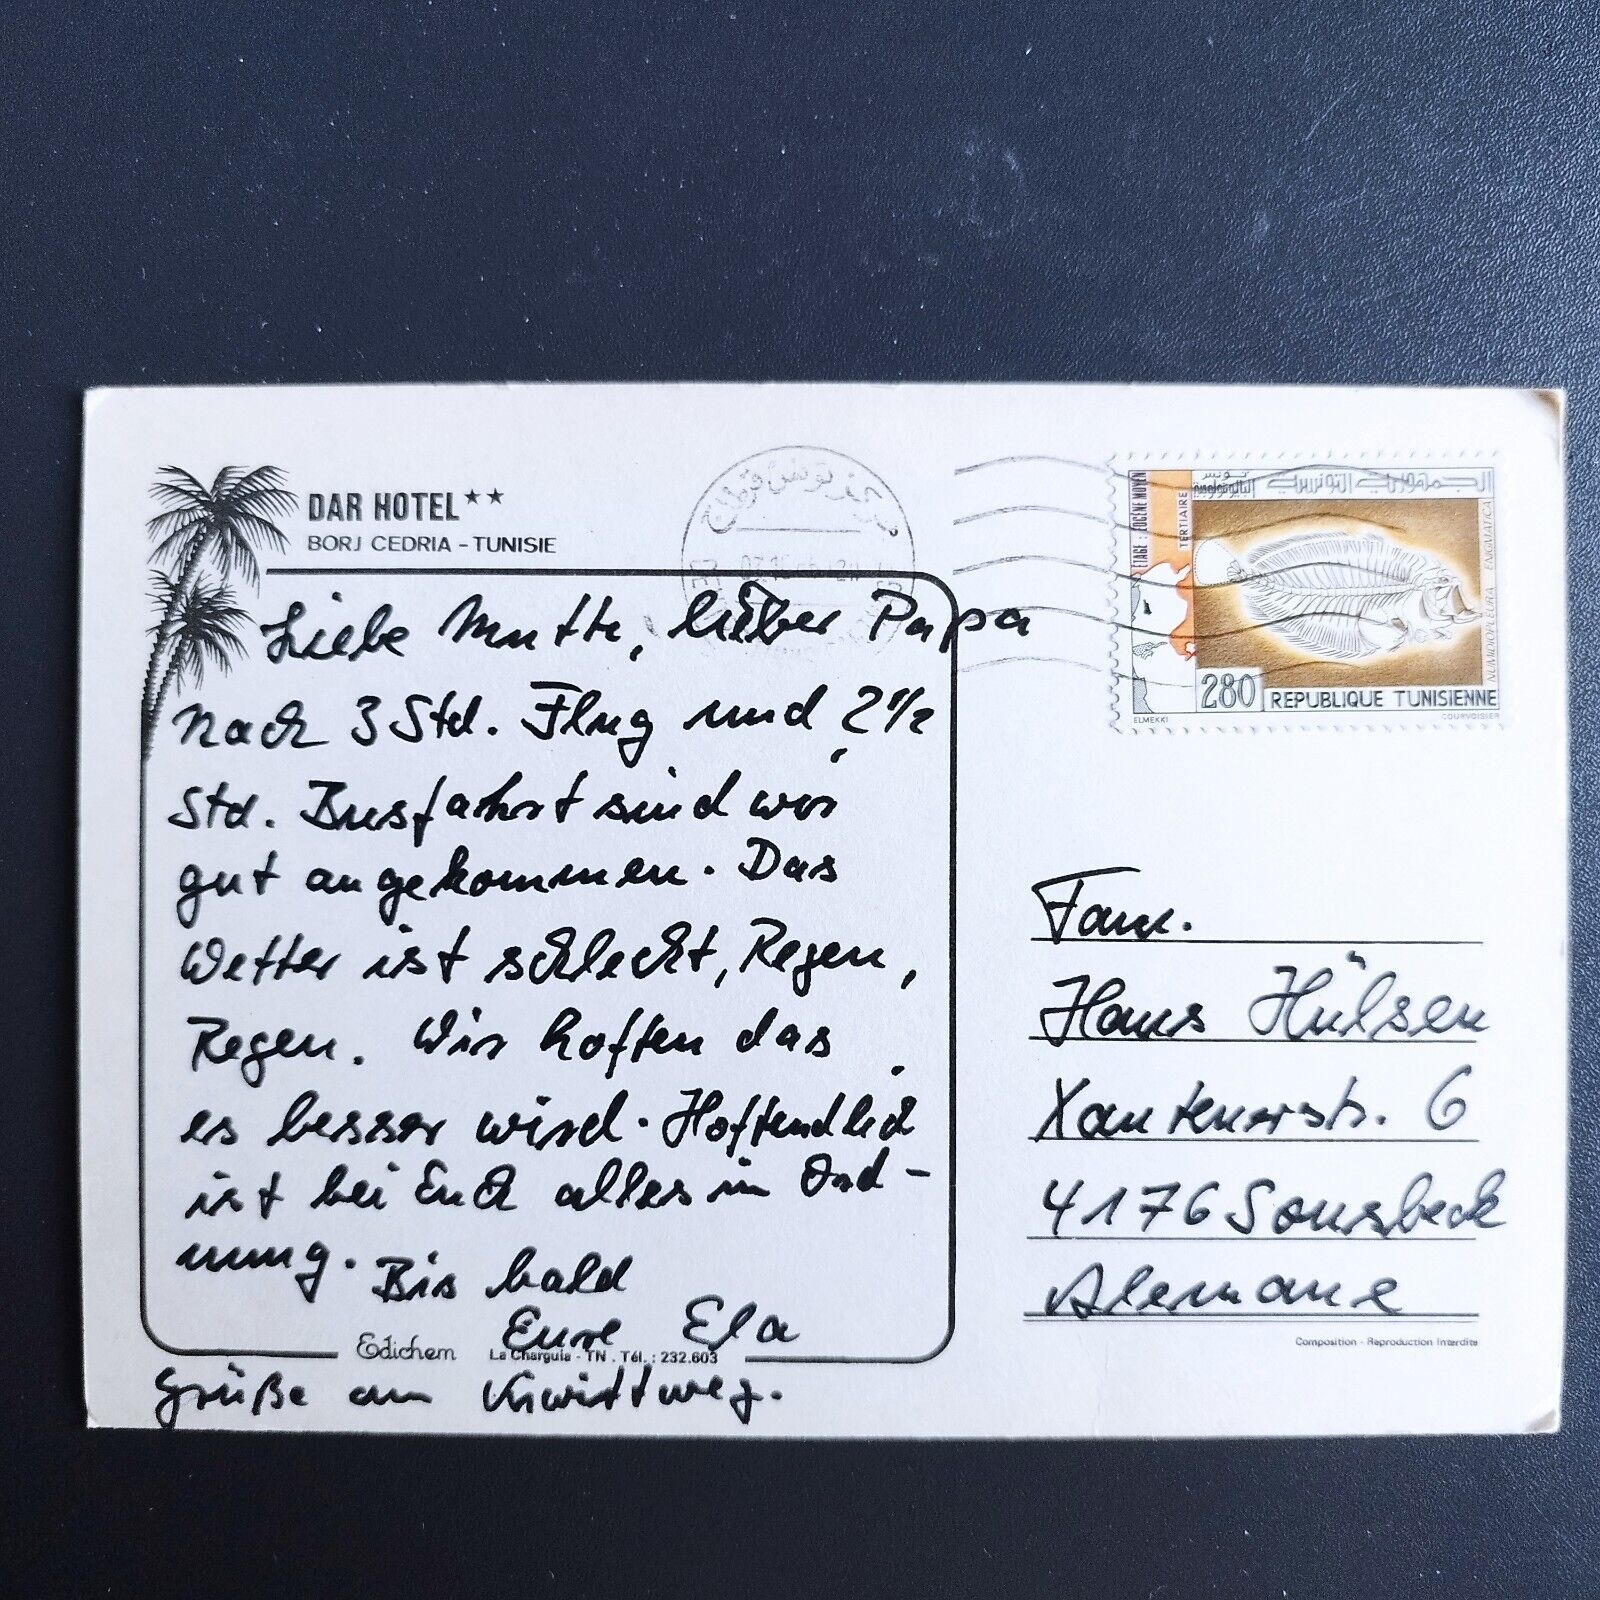 DAR HOTEL★★
BORJ CEDRIA - TUNISIE
Liebe Mutti, lieber Papa
Nach 3 Std. Flug und 2 1/2
Std. Busfahrt sind wir
gut angekommen. Das
Wetter ist schlecht, Regen,
Regen. Wir hoffen das
es besser wird. Hoffendlich
ist bei Euch alles in Ord-
nung. Bis bald
Eure Ela
Edichem La Charguia - TN . Tél. : 232.603
Grüße an
مركز تونس قرطاج
ETAGE : EOCÈNE MOYEN
TERTIAIRE
الجمهورية التونسية
تونس
NUMIDIOPLEURA ENIGMATICA
280 REPUBLIQUE TUNISIENNE
ELMEKKI COURVOISIER
Fam.
Hans Hülsen
Xantenerstr. 6
4176 Sonsbeck
Alemane
Composition - Reproduction Interdite